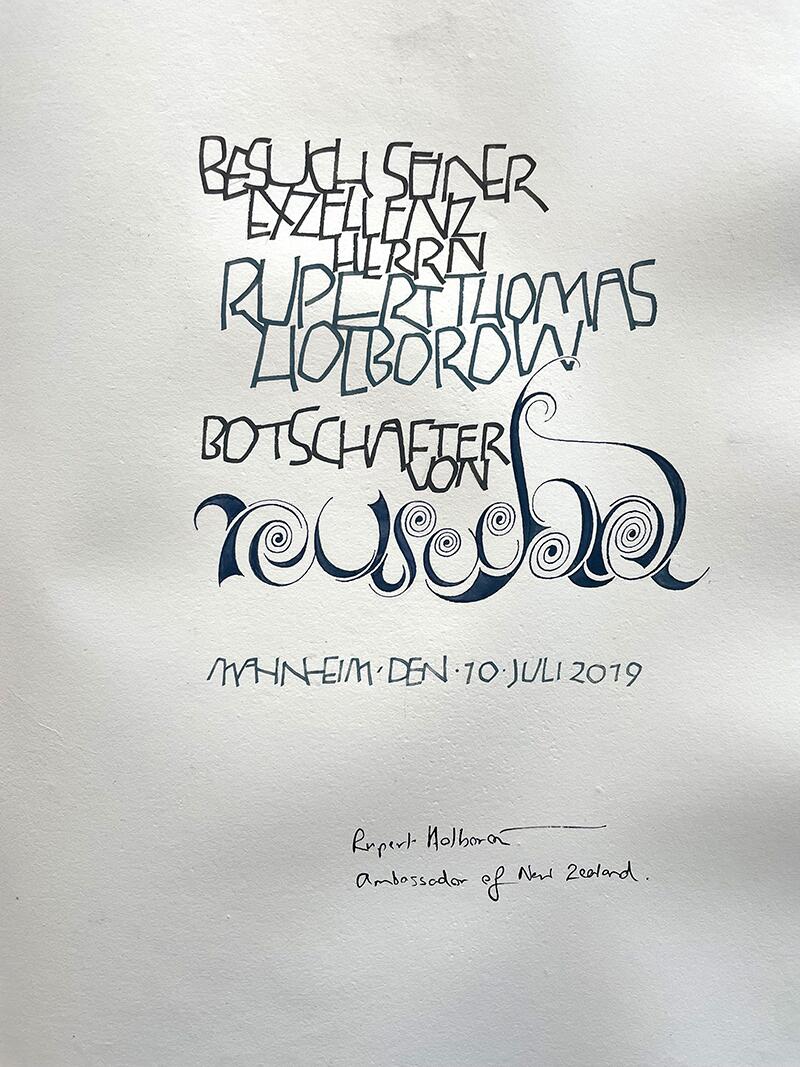 BESUCH SEINER
EXZELLENZ
HERRN
RUPERT THOMAS
HOLBOROW
BOTSCHAFTER
VON
neuseeland
MANNHEIM · DEN · 10 · JULI 2019
Rupert Holborow
Ambassador of New Zealand.